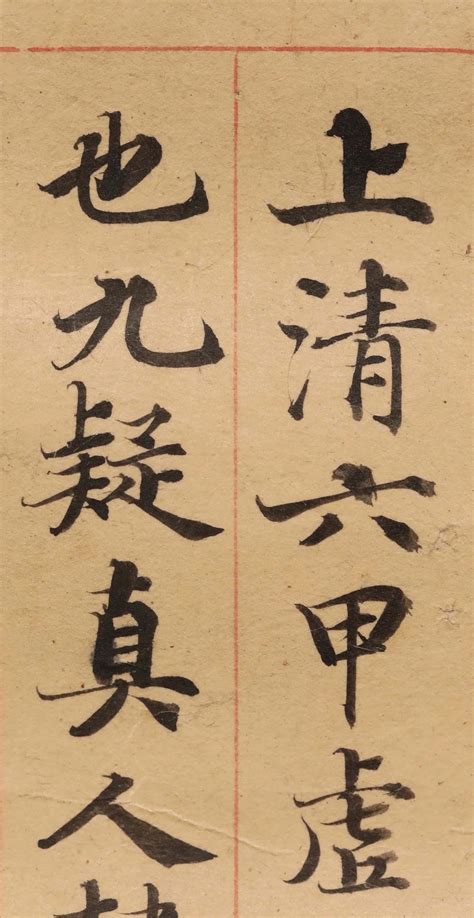 上清六甲虛
也九疑真人